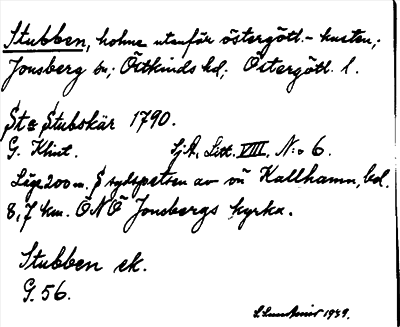 Stubben, holme utanför östergötl.- kusten;
Jonsberg sn; Östkinds hd; Östergötl. l.
St: Stubskär 1790.
G. Klint. SjA, Litt. VIII, N:o 6.
Läge 200 m. S sydspetsen av ön Kallhamn, bel.
8,7 km. ÖNÖ Jonsbergs kyrka.
Stubben ek.
G. 56.
1939.